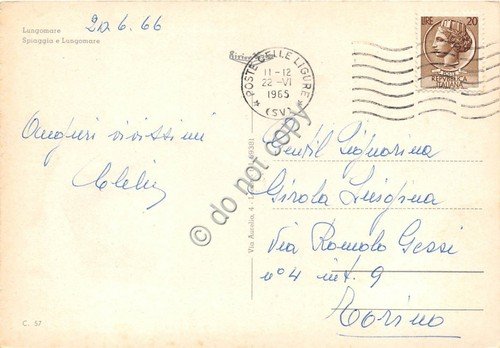 Lungomare
Spiaggia e Lungomare
20.6.66
Auguri vivissimi
Clelia
C. 57
Via Aurelia, 4
POSTE CELLE LIGURE
11-12
22-VI
1965
(SV)
LIRE 20
REPVBBLICA
ITALIANA
© do not copy
Gentil Signorina
Girola Luigina
Via Romolo Gessi
n° 4 int. 9
Torino